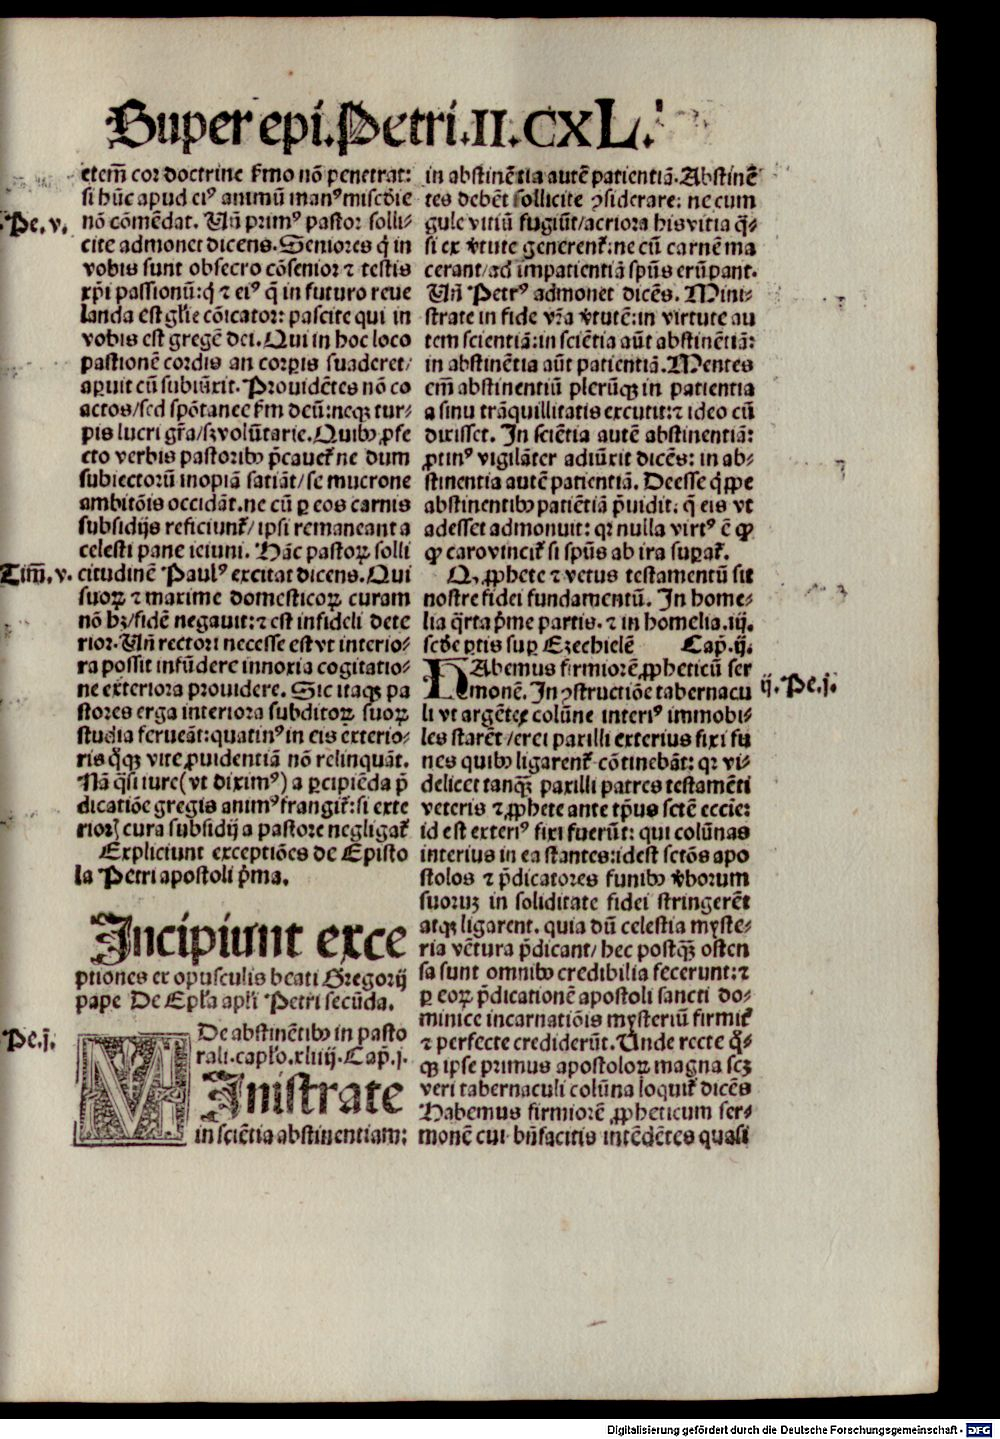 Super epi. Petri. II. CXL.
etem̄ cor doctrine ẜmo nō penetrat:
si hūc apud eiꝰ animū manꝰ miscd̄ie
Pe. v.
nō cōmēdat. Un̄ primꝰ pastor solli⸗
cite admonet dicens. Seniores q̇ in
vobis sunt obsecro cōsenior ⁊ testis
xp̄i passionū: q̇ ⁊ eiꝰ q̄ in futuro reue
landa est gl̄ie cōicator: pascite qui in
vobis est gregē dei. Qui in hoc loco
pastionē cordis an corꝑis suaderet/
aꝑuit cū subiūxit. Prouidētes nō co
actos/sed spōtanee ẜm deū: neqꝫ tur⸗
pis lucri gr̄a/sꝫ volūtarie. Quibꝰ ꝓfe
cto verbis pastoribꝰ p̄cauet̄ ne dum
subiectorū inopiā satiāt/se mucrone
ambitōis occidāt. ne cū ꝑ eos carnis
subsidijs reficiunt̄/ipsi remaneant a
celesti pane ieiuni. Hāc pastoꝝ solli
Tim̄. v.
citudinē Paulꝰ excitat dicens. Qui
suoꝝ ⁊ maxime domesticoꝝ curam
nō hꝫ/fidē negauit: ⁊ est infideli dete
rior. Un̄ rectori necesse est vt interio⸗
ra possit infūdere innoxia cogitatio⸗
ne exteriora prouidere. Sic itaqꝫ pa
stores erga interiora subditoꝝ suoꝝ
studia ferueāt: quatinꝰ in eis exterio⸗
ris q̊qꝫ vite ꝓuidentiā nō relinquāt.
Nā q̄si iure (vt diximꝰ) a ꝑcipiēda p̄
dicatiōe gregis animꝰ frangit̄: si exte
rioꝝ cura subsidij a pastore negligat̄
Expliciunt exceptiōes de Episto
la Petri apostoli p̄ma.
Incipiunt exce
ptiones ex opusculis beati Gregorij
pape De Epl̄a apl̄i Petri secūda.
Pe. j.
De abstinētibꝰ in pasto
rali. capl̄o. xliiij. Cap̄. j.
MInistrate
in sciētia abstinentiam:
in abstinētia autē patientiā. Abstinē
tes debēt sollicite ꝯsiderare: ne cum
gule vitiū fugiūt/acriora his vitia q̄⸗
si ex v̄tute generent̄: ne cū carnē ma
cerant/ad impatientiā spūs erūpant.
Un̄ Petrꝰ admonet dicēs. Mini⸗
strate in fide vr̄a v̄tutē: in virtute au
tem scientiā: in sciētia aūt abstinētiā:
in abstinētia aūt patientiā. Mentes
em̄ abstinentiū plerūqꝫ in patientia
a sinu trāquillitatis excutit: ⁊ ideo cū
dixisset. In sciētia autē abstinentiā:
ꝓtinꝰ vigilāter adiūxit dicēs: in ab⸗
stinentia autē patientiā. Deesse q̇ppe
abstinentibꝰ patiētiā p̄uidit. q̄ eis vt
adesset admonuit: qꝛ nulla virtꝰ ē qꝫ
qꝫ caro vincit̄ si spūs ab ira suꝑat̄.
Q, ꝓphete ⁊ vetus testamentū sit
nostre fidei fundamentū. In home⸗
lia q̄rta p̄me partis. ⁊ in homelia. iij.
scd̄e ꝑtis suꝑ Ezechielē Cap̄. ij.
ij. Pe. j.
HAbemus firmiorē ꝓpheticū ser
monē. In ꝯstructiōe tabernacu
li vt argētee colūne interiꝰ immobi⸗
les starēt/erei paxilli exterius fixi fu
nes quibꝰ ligarent̄ cōtinebāt: qꝛ vi⸗
delicet tanqꝫ paxilli patres testamēti
veteris ⁊ ꝓphete ante tp̄us scte̅ eccie:
id est exteriꝰ fixi fuerūt: qui colūnas
interius in ea stantes: idest sctōs apo
stolos ⁊ p̄dicatores funibꝰ v̄borum
suorum in soliditate fidei stringerēt
atqꝫ ligarent. quia dū celestia myste⸗
ria vētura p̄dicant/hec postqꝫ osten
sa sunt omnibꝰ credibilia fecerunt: ⁊
ꝑ eoꝝ p̄dicationē apostoli sancti do⸗
minice incarnatiōis mysteriū firmit̄
⁊ perfecte crediderūt. Unde recte q̊⸗
qꝫ ipse primus apostoloꝝ magna scꝫ
veri tabernaculi colūna loquit̄ dicēs
Habemus firmiorē ꝓpheticum ser⸗
monē cui bn̄facitis intēdētes quasi
Digitalisierung gefördert durch die Deutsche Forschungsgemeinschaft - DFG